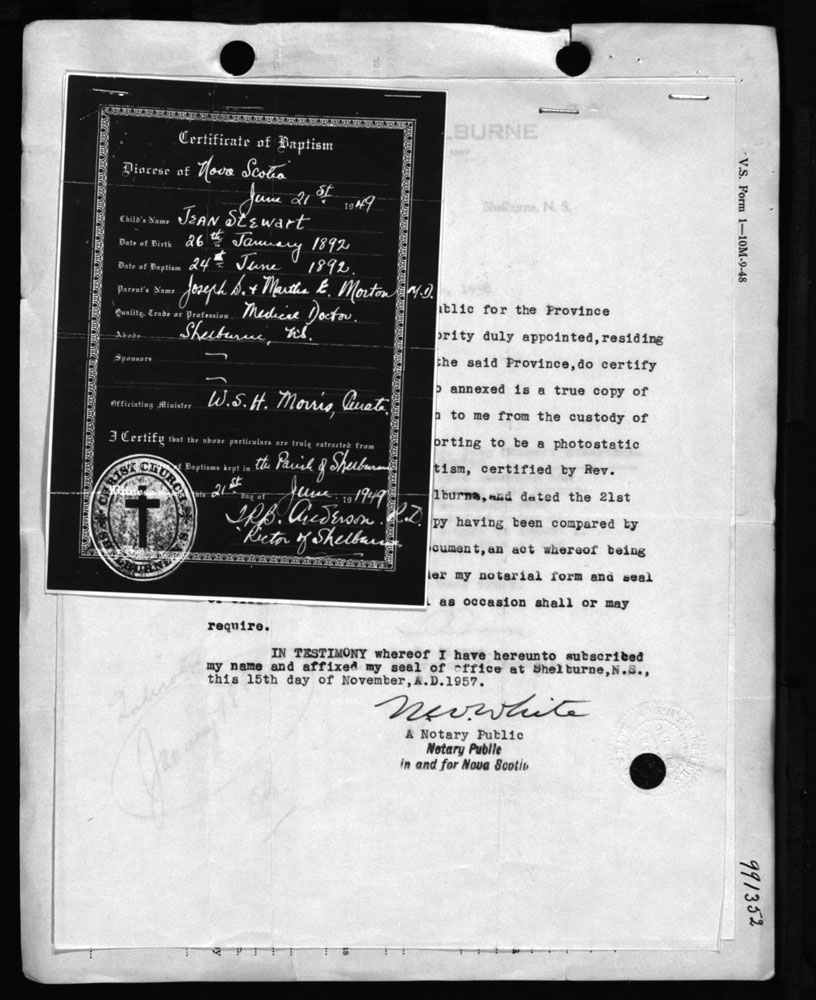 Certificate of Baptism
Diocese of Nova Scotia
June 21st 1949
Child's Name JEAN STEWART
Date of Birth 26th January 1892
Date of Baptism 24th June 1892.
Parent's Name Joseph S. & Martha E. Morton M.D.
Quality, Trade or Profession Medical Doctor.
Abode Shelburne, N.S.
Sponsors
Officiating Minister W.S.H. Morris, Curate.
I Certify that the above particulars are truly extracted from
of Baptisms kept in the Parish of Shelburne
this 21st day of June 1949
T.R.B. Anderson. R.D.
Rector of Shelburne.
CHRIST CHURCH
SHELBURNE N.S.
LBURNE
Shelburne, N. S.
blic for the Province
ority duly appointed,residing
the said Province,do certify
o annexed is a true copy of
n to me from the custody of
orting to be a photostatic
tism, certified by Rev.
lburne,and dated the 21st
py having been compared by
cument,an act whereof being
er my notarial form and seal
as occasion shall or may
require.
IN TESTIMONY whereof I have hereunto subscribed
my name and affixed my seal of office at Shelburne,N.S.,
this 15th day of November,A.D.1957.
A Notary Public
Notary Public
in and for Nova Scotia
V.S. Form 1—10M-9-48
991352